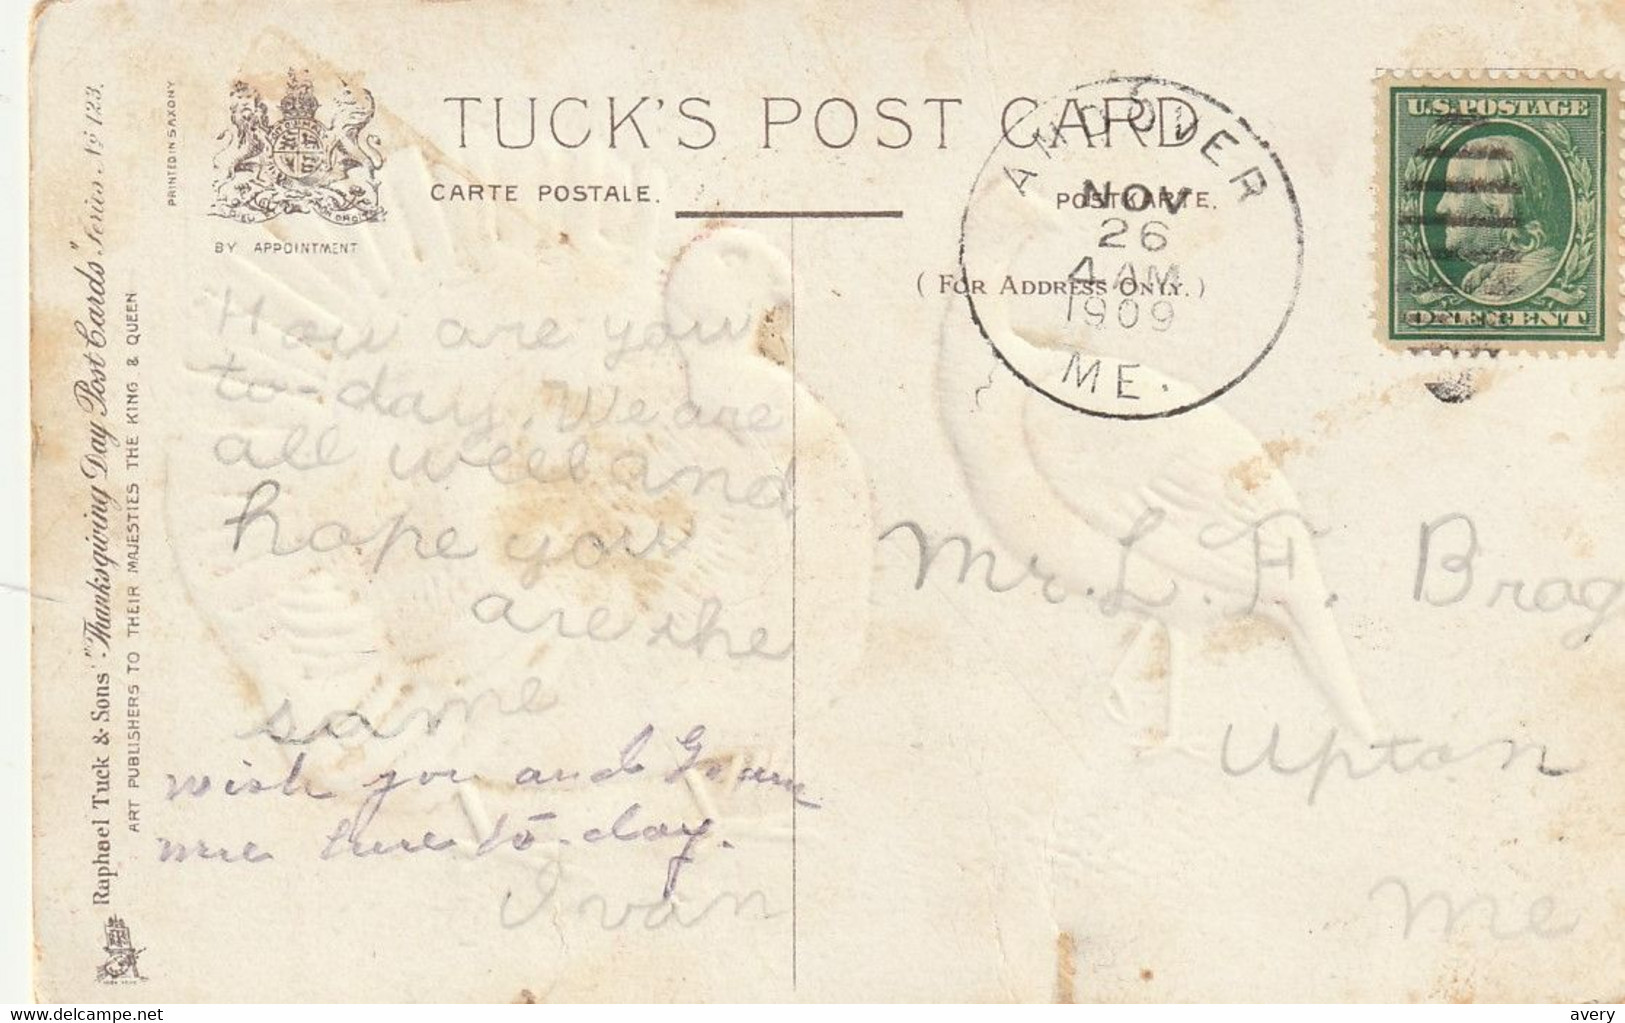 TUCK'S POST CARD
CARTE POSTALE.
POSTKARTE.
(FOR ADDRESS ONLY.)
BY APPOINTMENT
DIEU ET MON DROIT
PRINTED IN SAXONY
Raphael Tuck & Sons' "Thanksgiving Day Post Cards," Series No 123.
ART PUBLISHERS TO THEIR MAJESTIES THE KING & QUEEN
ANDOVER
NOV
26
4 AM
1909
ME.
U.S. POSTAGE
ONE CENT
How are you
to-day. We are
all well and
hope you
are the
same
wish you and Gram
were here to-day.
Ivan
Mr. L. F. Brag
Upton
Me
www.delcampe.net
avery